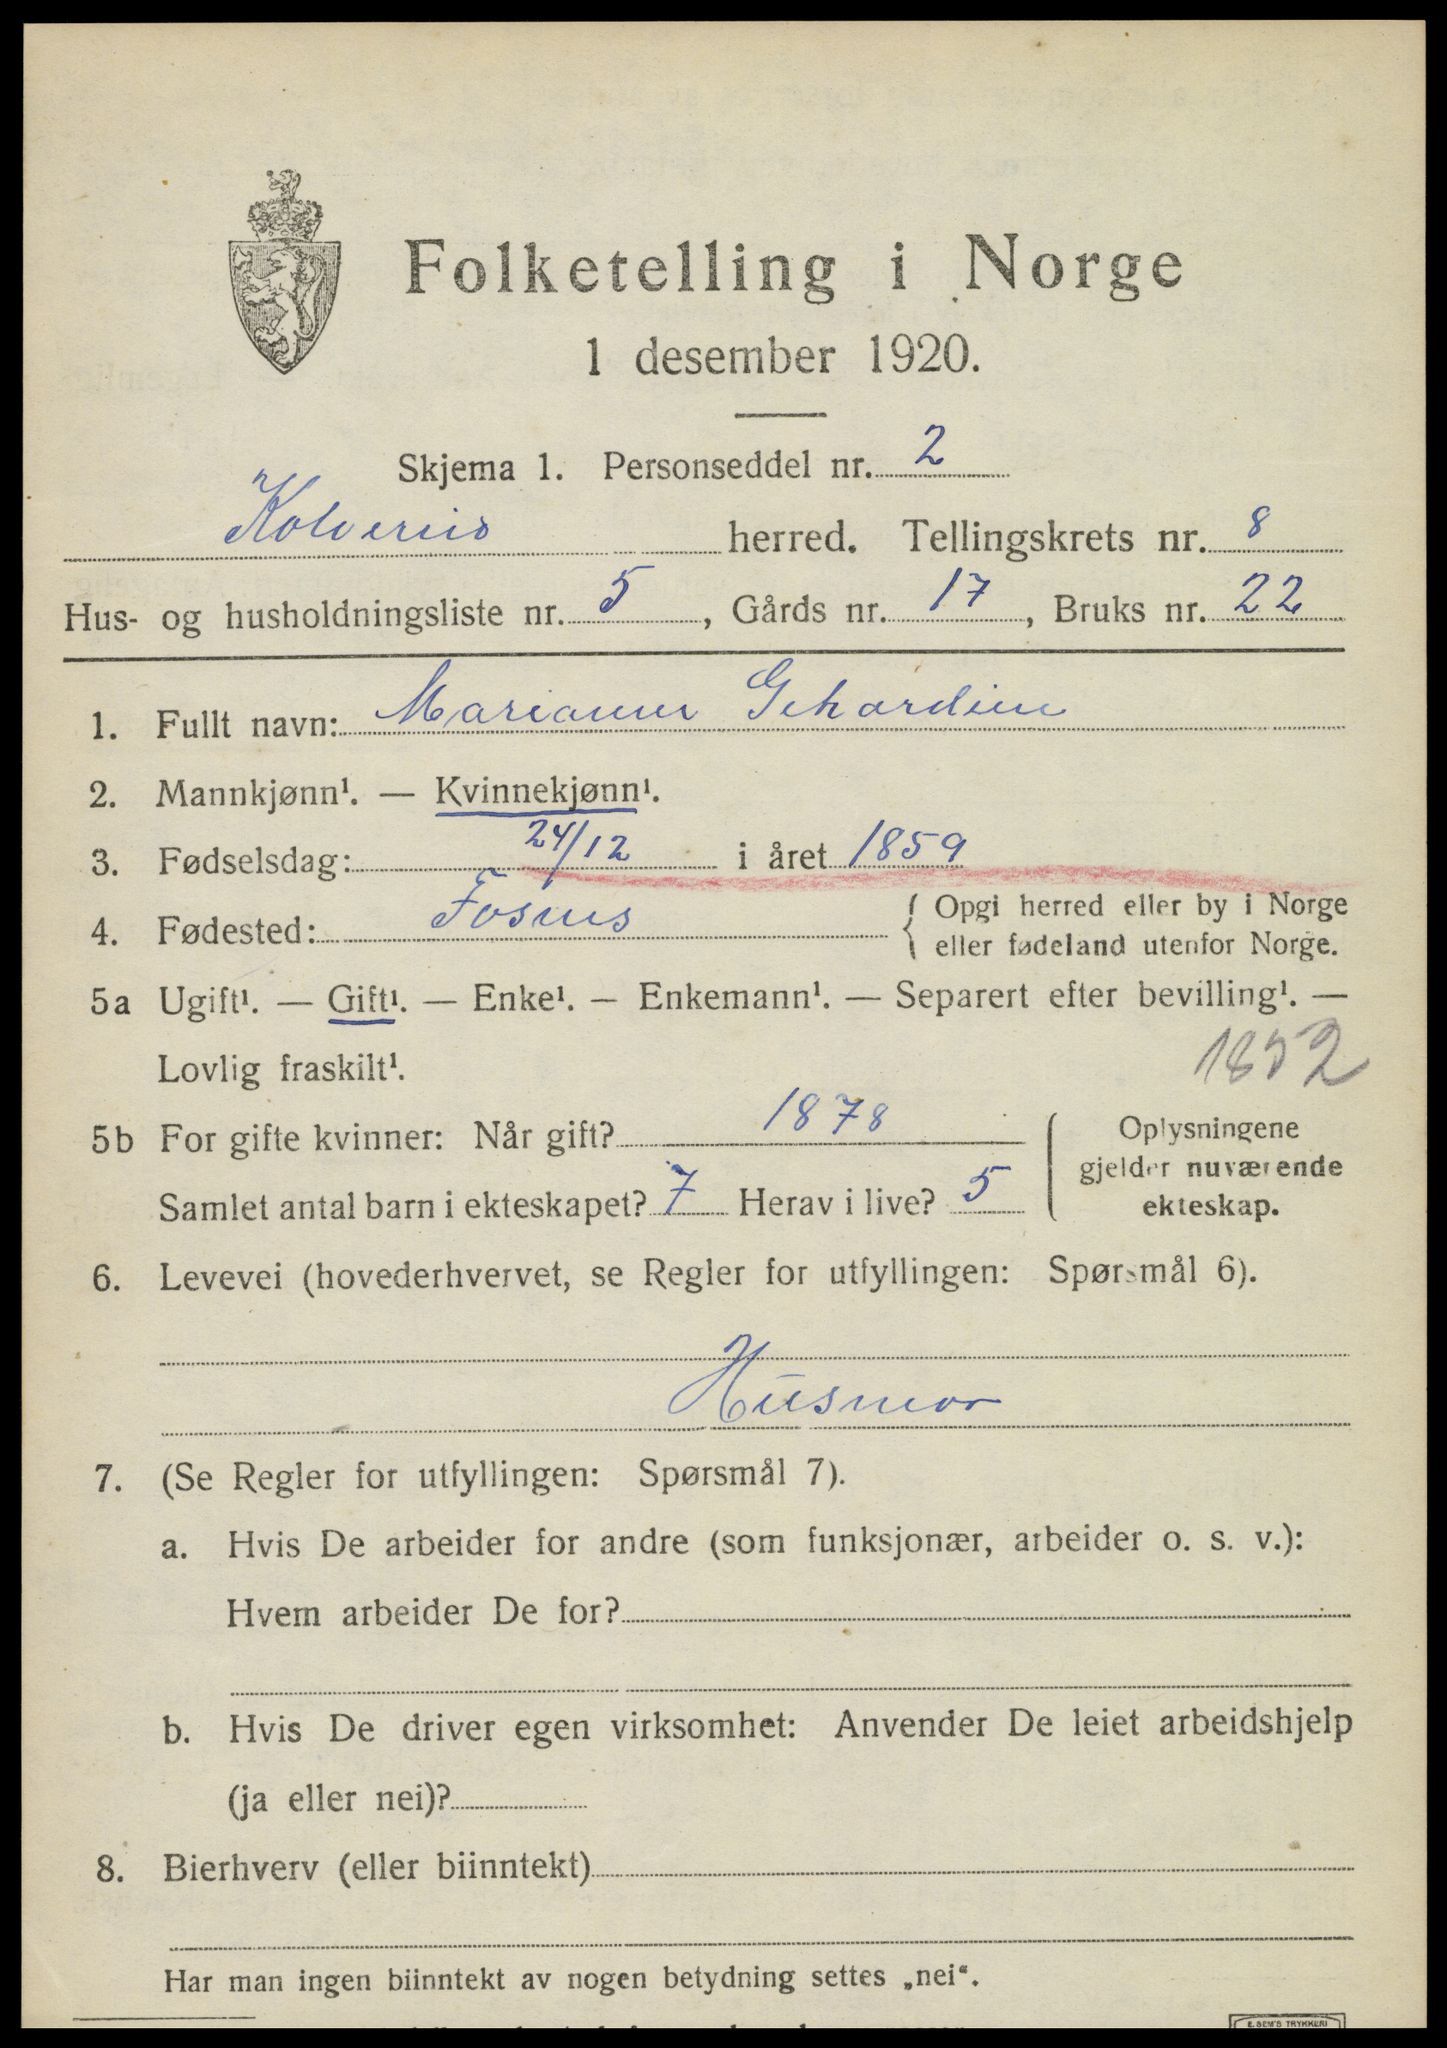 Folketelling i Norge
1 desember 1920.
Skjema 1. Personseddel nr. 2
Kolvereid herred. Tellingskrets nr. 8
Hus- og husholdningsliste nr. 5, Gårds nr. 17, Bruks nr. 22
1. Fullt navn: Marianne Gehardine
2. Mannkjønn¹. — Kvinnekjønn¹.
3. Fødselsdag: 24/12 i året 1859
4. Fødested: Fosnes { Opgi herred eller by i Norge
eller fødeland utenfor Norge.
5a Ugift¹. — Gift¹. — Enke¹. — Enkemann¹. — Separert efter bevilling¹. —
Lovlig fraskilt¹.
1852
5b For gifte kvinner: Når gift? 1878
Samlet antal barn i ekteskapet? 7 Herav i live? 5
Oplysningene
gjelder nuværende
ekteskap.
6. Levevei (hovederhvervet, se Regler for utfyllingen: Spørsmål 6).
Husmor
7. (Se Regler for utfyllingen: Spørsmål 7).
a. Hvis De arbeider for andre (som funksjonær, arbeider o. s. v.):
Hvem arbeider De for?
b. Hvis De driver egen virksomhet: Anvender De leiet arbeidshjelp
(ja eller nei)?
8. Bierhverv (eller biinntekt)
Har man ingen biinntekt av nogen betydning settes „nei“.
E. SEM'S TRYKKERI